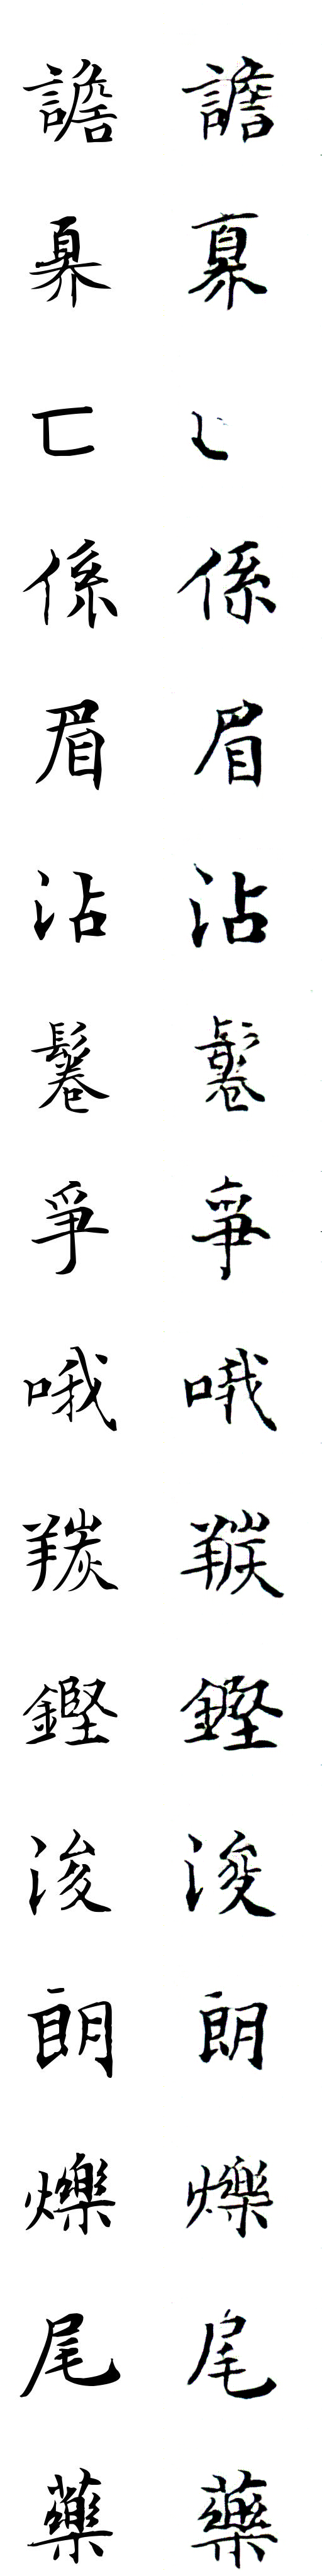 譫 譫
奡 奡
匸
係 係
眉 眉
沾 沾
鬈 鬈
爭 爭
哦 哦
羰 羰
鏗 鏗
浚 浚
朗 朗
爍 爍
尾 尾
藥 藥